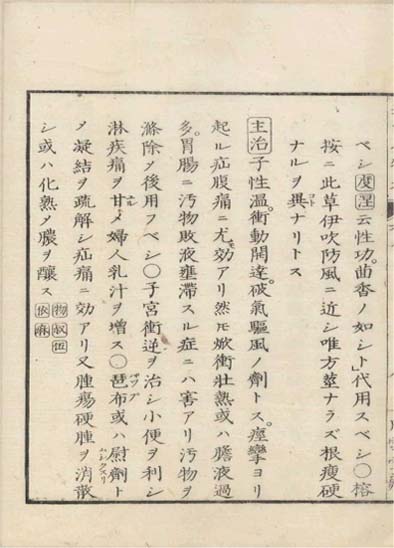 ベシ度涅云性功茴香ノ如シト代用スベシ〇榕
按ニ此草伊吹防風ニ近シ唯方莖ナラズ根瘦硬
ナルヲ異ナリトス
主治子性溫衝動開達破氣驅風ノ劑トス痙攣ヨリ
起ル疝腹痛ニ尤効アリ然モ焮衝壯熱或ハ膽液過
多胃腸ニ汚物敗液壅滯スル症ニハ害アリ汚物ヲ
滌除メ後用フベシ〇子宮衝逆ヲ治シ小便ヲ利シ
淋疾痛ヲ甘メ婦人乳汁ヲ增ス〇琶布或ハ尉劑ト
メ凝結ヲ疏解シ疝痛ニ効アリ又腫瘍硬腫ヲ消散
シ或ハ化熟メ膿ヲ釀ス